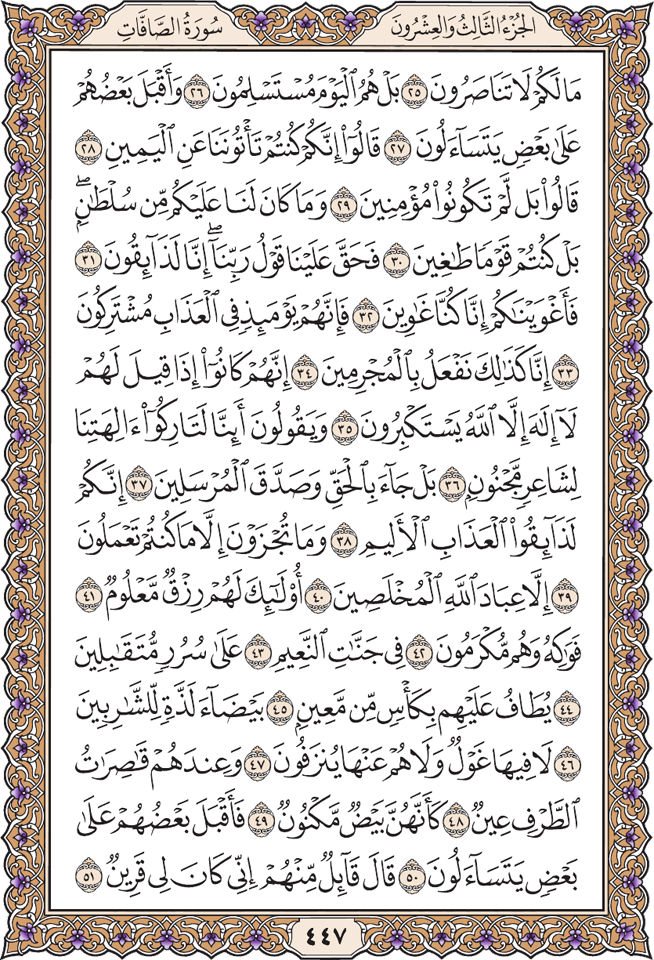 الجُزْءُ الثَّالِثُ وَالعِشْرُونَ
سُورَةُ الصَّافَّاتِ
مَا لَكُمْ لَا تَنَاصَرُونَ ٢٥ بَلْ هُمُ ٱلْيَوْمَ مُسْتَسْلِمُونَ ٢٦ وَأَقْبَلَ بَعْضُهُمْ
عَلَىٰ بَعْضٍ يَتَسَآءَلُونَ ٢٧ قَالُوٓا۟ إِنَّكُمْ كُنتُمْ تَأْتُونَنَا عَنِ ٱلْيَمِينِ ٢٨
قَالُوا۟ بَل لَّمْ تَكُونُوا۟ مُؤْمِنِينَ ٢٩ وَمَا كَانَ لَنَا عَلَيْكُم مِّن سُلْطَٰنٍۭ ۖ
بَلْ كُنتُمْ قَوْمًا طَٰغِينَ ٣٠ فَحَقَّ عَلَيْنَا قَوْلُ رَبِّنَآ ۖ إِنَّا لَذَآئِقُونَ ٣١
فَأَغْوَيْنَٰكُمْ إِنَّا كُنَّا غَٰوِينَ ٣٢ فَإِنَّهُمْ يَوْمَئِذٍ فِى ٱلْعَذَابِ مُشْتَرِكُونَ
٣٣ إِنَّا كَذَٰلِكَ نَفْعَلُ بِٱلْمُجْرِمِينَ ٣٤ إِنَّهُمْ كَانُوٓا۟ إِذَا قِيلَ لَهُمْ
لَآ إِلَٰهَ إِلَّا ٱللَّهُ يَسْتَكْبِرُونَ ٣٥ وَيَقُولُونَ أَئِنَّا لَتَارِكُوٓا۟ ءَالِهَتِنَا
لِشَاعِرٍ مَّجْنُونٍۭ ٣٦ بَلْ جَآءَ بِٱلْحَقِّ وَصَدَّقَ ٱلْمُرْسَلِينَ ٣٧ إِنَّكُمْ
لَذَآئِقُوا۟ ٱلْعَذَابِ ٱلْأَلِيمِ ٣٨ وَمَا تُجْزَوْنَ إِلَّا مَا كُنتُمْ تَعْمَلُونَ
٣٩ إِلَّا عِبَادَ ٱللَّهِ ٱلْمُخْلَصِينَ ٤٠ أُو۟لَٰٓئِكَ لَهُمْ رِزْقٌ مَّعْلُومٌ ٤١
فَوَٰكِهُ وَهُم مُّكْرَمُونَ ٤٢ فِى جَنَّٰتِ ٱلنَّعِيمِ ٤٣ عَلَىٰ سُرُرٍ مُّتَقَٰبِلِينَ
٤٤ يُطَافُ عَلَيْهِم بِكَأْسٍ مِّن مَّعِينٍۭ ٤٥ بَيْضَآءَ لَذَّةٍ لِّلشَّٰرِبِينَ
٤٦ لَا فِيهَا غَوْلٌ وَلَا هُمْ عَنْهَا يُنزَفُونَ ٤٧ وَعِندَهُمْ قَٰصِرَٰتُ
ٱلطَّرْفِ عِينٌ ٤٨ كَأَنَّهُنَّ بَيْضٌ مَّكْنُونٌ ٤٩ فَأَقْبَلَ بَعْضُهُمْ عَلَىٰ
بَعْضٍ يَتَسَآءَلُونَ ٥٠ قَالَ قَآئِلٌ مِّنْهُمْ إِنِّى كَانَ لِى قَرِينٌ ٥١
٤٤٧